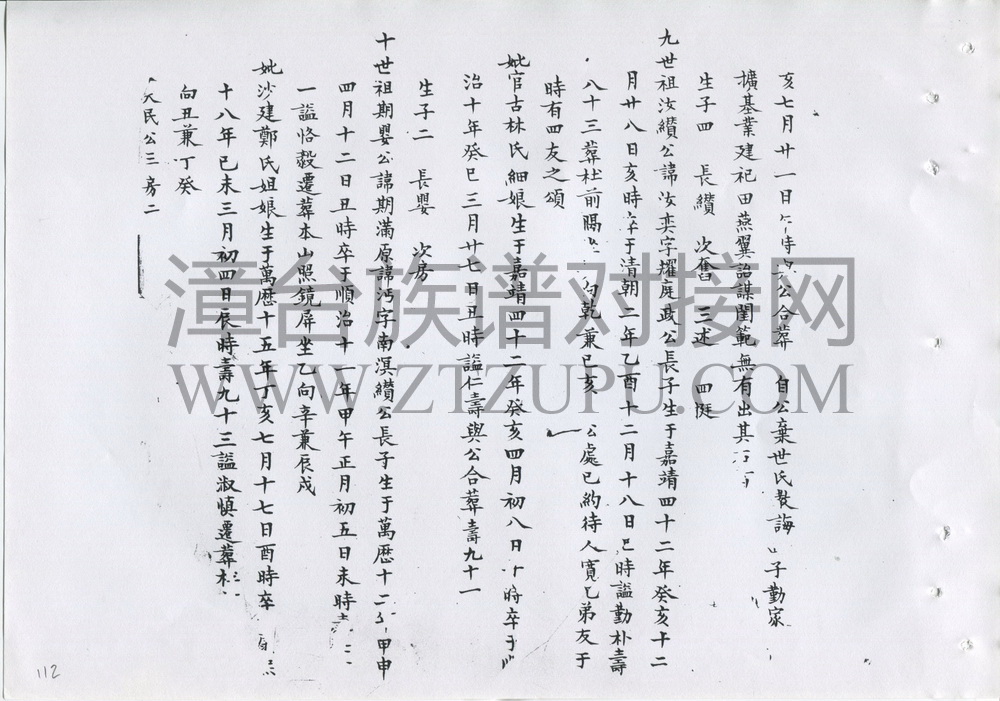 亥七月廿一日 時 公合葬 自公棄世氏教誨 子勤家
擴基業建祀田燕翼詒謀閨範無有出其
生子四 長纘 次奮 三述 四
九世祖汝纘公諱汝奕字耀庭政公長子生于嘉靖四十二年癸亥十二
月廿八日亥時卒于清朝二年乙酉十二月十八日巳時謚勤朴壽
八十三葬杜前 向乾兼巳亥 公處已約待人寬 弟友于
時有四友之頌
妣官古林氏細娘生于嘉靖四十二年癸亥四月初八日 時卒于順
治十年癸巳三月廿七日丑時謚仁壽與公合葬壽九十一
生子二 長嬰 次房
十世祖期嬰公諱期滿原諱沔字南溟纘公長子生于萬歷十二 甲申
四月十二日丑時卒于順治十一年甲午正月初五日未時
一謚恪毅遷葬本山照鏡屏坐乙向辛兼辰戌
妣沙建鄭氏姐娘生于萬歷十五年丁亥七月十七日酉時卒
十八年己未三月初四日辰時壽九十三謚淑慎遷葬
向丑兼丁癸
民公三房二
112
漳台族谱对接网
WWW.ZTZUPU.COM